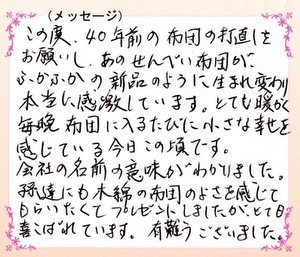 (メッセージ)
この度、40年前の布団の打直しを
お願いし、あのせんべい布団が
ふかふかの新品のように生まれ変わり
本当に感激しています。とても暖かく
毎晩布団に入るたびに小さな幸せを
感じている今日この頃です。
会社の名前の意味がわかりました。
孫達にも木綿の布団のよさを感じて
もらいたくてプレゼントしましたが、とても
喜こばれています。有難うございました。